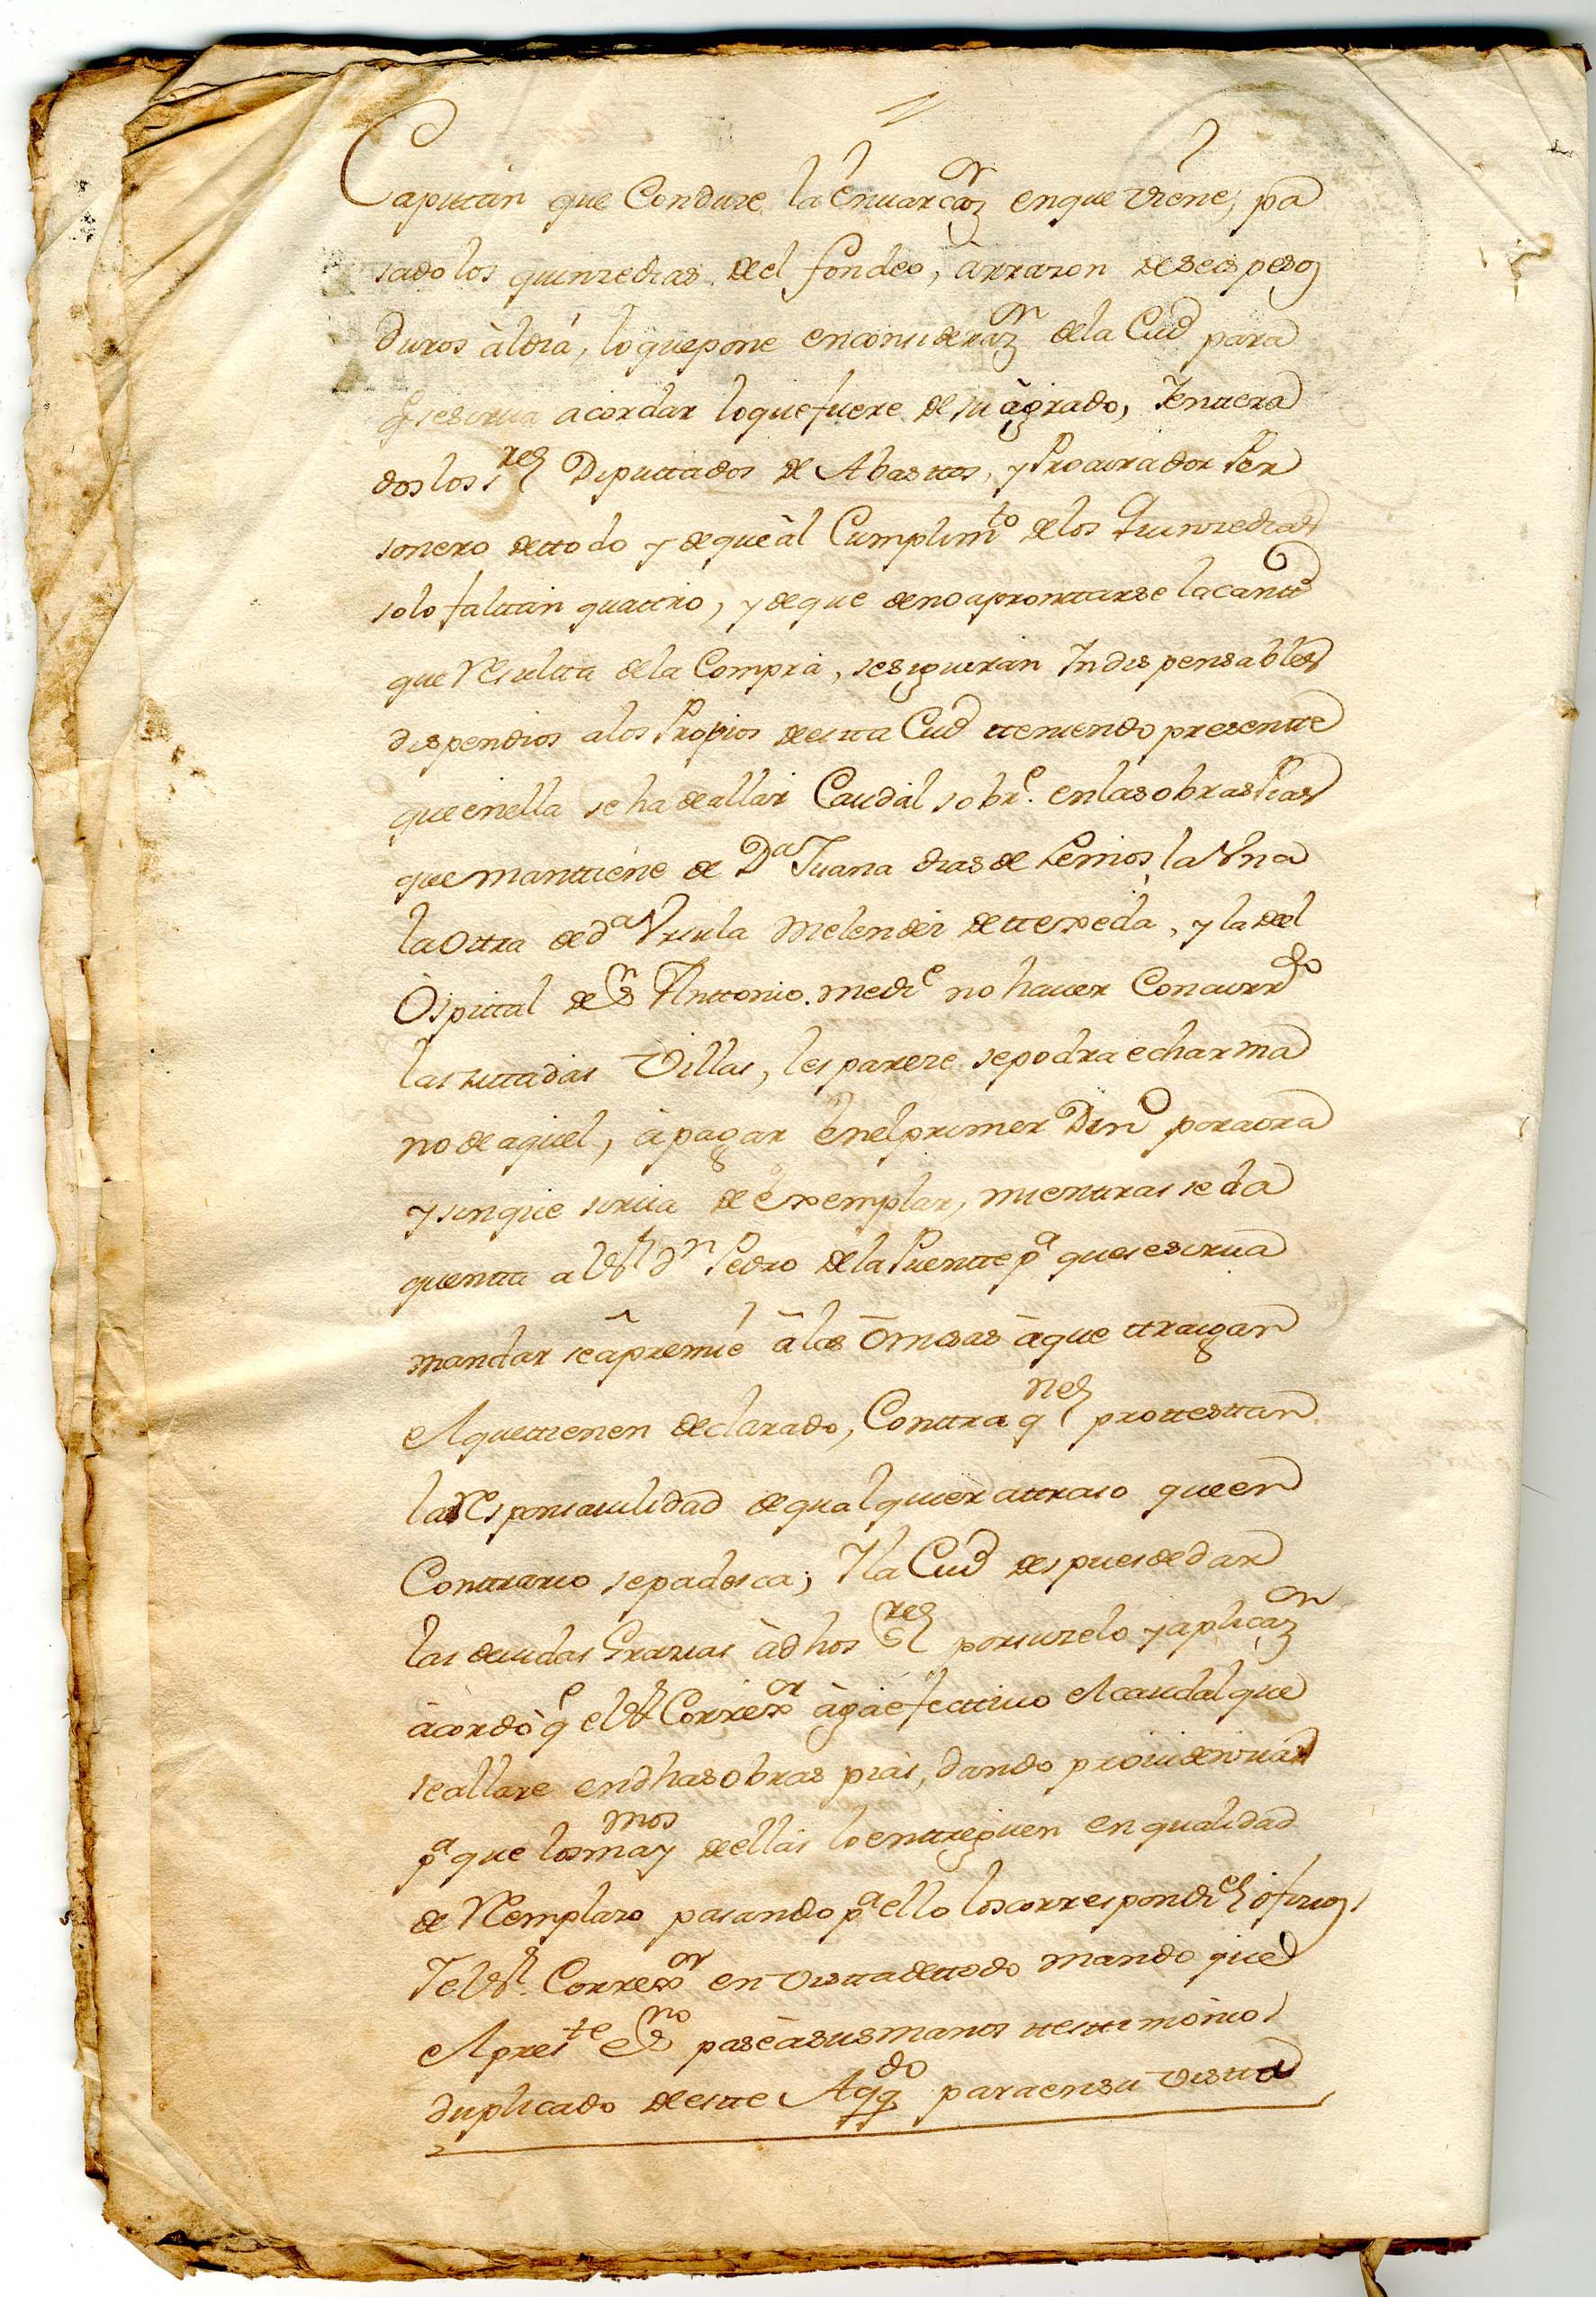 Capittán que Conduze la Envarcaᵒⁿ enque viene, pa
sado los quinzedias de el fondeo, àrrazon deseis pesos
duros àldiá, loquepone enconsideraᵒⁿ dela Ciud para
q̃ sesirva acordar loquefuere de su àgrado, Ienttera
doslos sʳᵉˢ Diputtados de Abasttos, y Procurador Per
sonero dettodo y dequeàl Cumplimᵗᵒ delos Quinzedias
solo falttan quattro, y deque denoapronttarse lacantᵈ
que Resultta dela Compra, seseguirán Indispensables
dispendios alos Propios destta Ciud tteniendo presentte
que enella seha deallar Caudal sobrᵉ. enlasobrasPias
que manttiene de Dᵃ Juana dias de Lemos, laUna
laOttra dedᵃ Ursula Melendez dettexeda, y ladel
Ospittal deSⁿ Anttonio. mediᵉ no haver Concurrᵈᵒ
las zittadas Villas, les pareze sepodra echarma
no deaquel, à pagar enelprimer Dinᵒ poraora
y sinque sirva de Exemplar, mienttras seda
quentta alSʳ dⁿ Pedro delaPuentte pᵃ quesesirva
mandar seàpremie àlas Omisas àque ttraigan
elquettienen declarado, Conttra qⁿᵉˢ prottesttan
laResponsavilidad dequalquier attraso queen
Conttrario sepadesca; Yla Ciud despuesdedar
las devidas Grazias àdhos Sʳᵉˢ porsuzelo yaplicaᵒⁿ
àcordò qᵉ elSʳ Correxᵒʳ àgaefecttivo elcaudalque
seallare endhasobras pias, dando providenzias
pᵃ que losmayᵐᵒˢ deellas loenttreguen enqualidad
de Remplazo pasando pᵃ ello loscorrespondiᵉˢ ofizios,
YelSʳ. Correxᵒʳ en visttadettodo mando que
elpresᵗᵉ Esⁿᵒ paseàsusmanos ttesttimonio
duplicado deestte Aqqᵈᵒ paraensu vistta